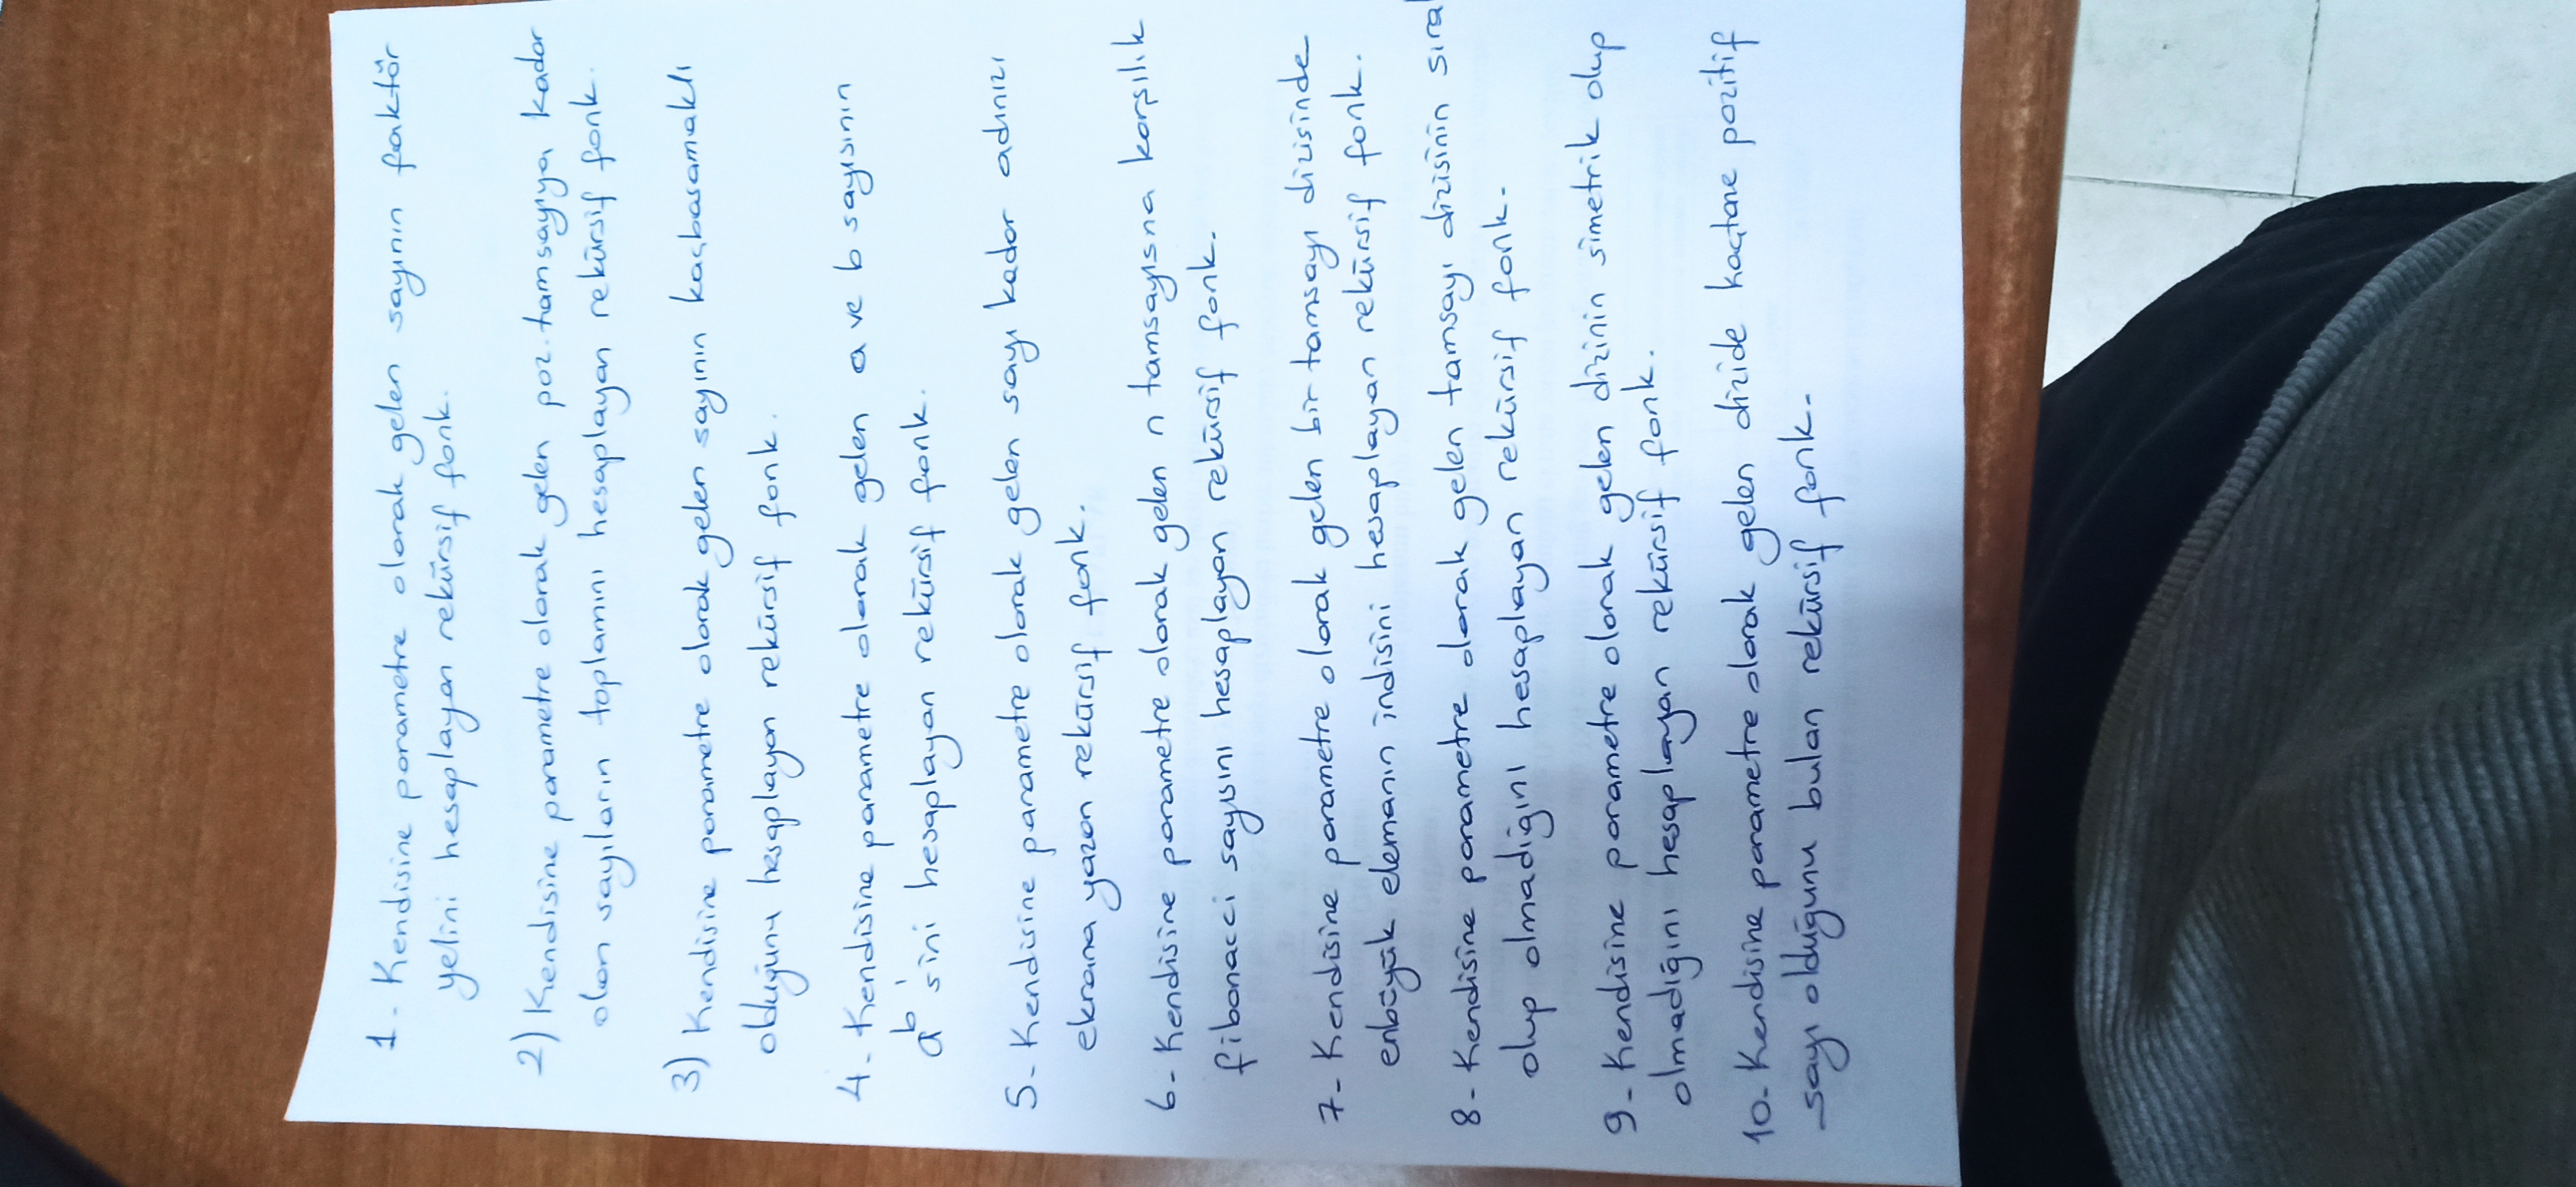 1- Kendisine parametre olarak gelen sayının faktör
yelini hesaplayan rekürsif fonk.
2) Kendisine parametre olarak gelen poz. tamsayıya kadar
olan sayıların toplamını hesaplayan rekürsif fonk.
3) Kendisine parametre olarak gelen sayının kaçbasamaklı
olduğunu hesaplayan rekürsif fonk.
4- Kendisine parametre olarak gelen a ve b sayısının
a^b 'sini hesaplayan rekürsif fonk.
5- Kendisine parametre olarak gelen sayı kadar adınızı
ekrana yazan rekürsif fonk.
6- Kendisine parametre olarak gelen n tamsayısna karşılık
fibonacci sayısını hesaplayan rekürsif fonk.
7- Kendisine parametre olarak gelen bir tamsayı dizisinde
enbüyük elemanın indisini hesaplayan rekürsif fonk.
8- Kendisine parametre olarak gelen tamsayı dizisinin sıral
olup olmadığını hesaplayan rekürsif fonk.
9- Kendisine parametre olarak gelen dizinin simetrik olup
olmadığını hesaplayan rekürsif fonk.
10- Kendisine parametre olarak gelen dizide kaçtane pozitif
sayı olduğunu bulan rekürsif fonk.